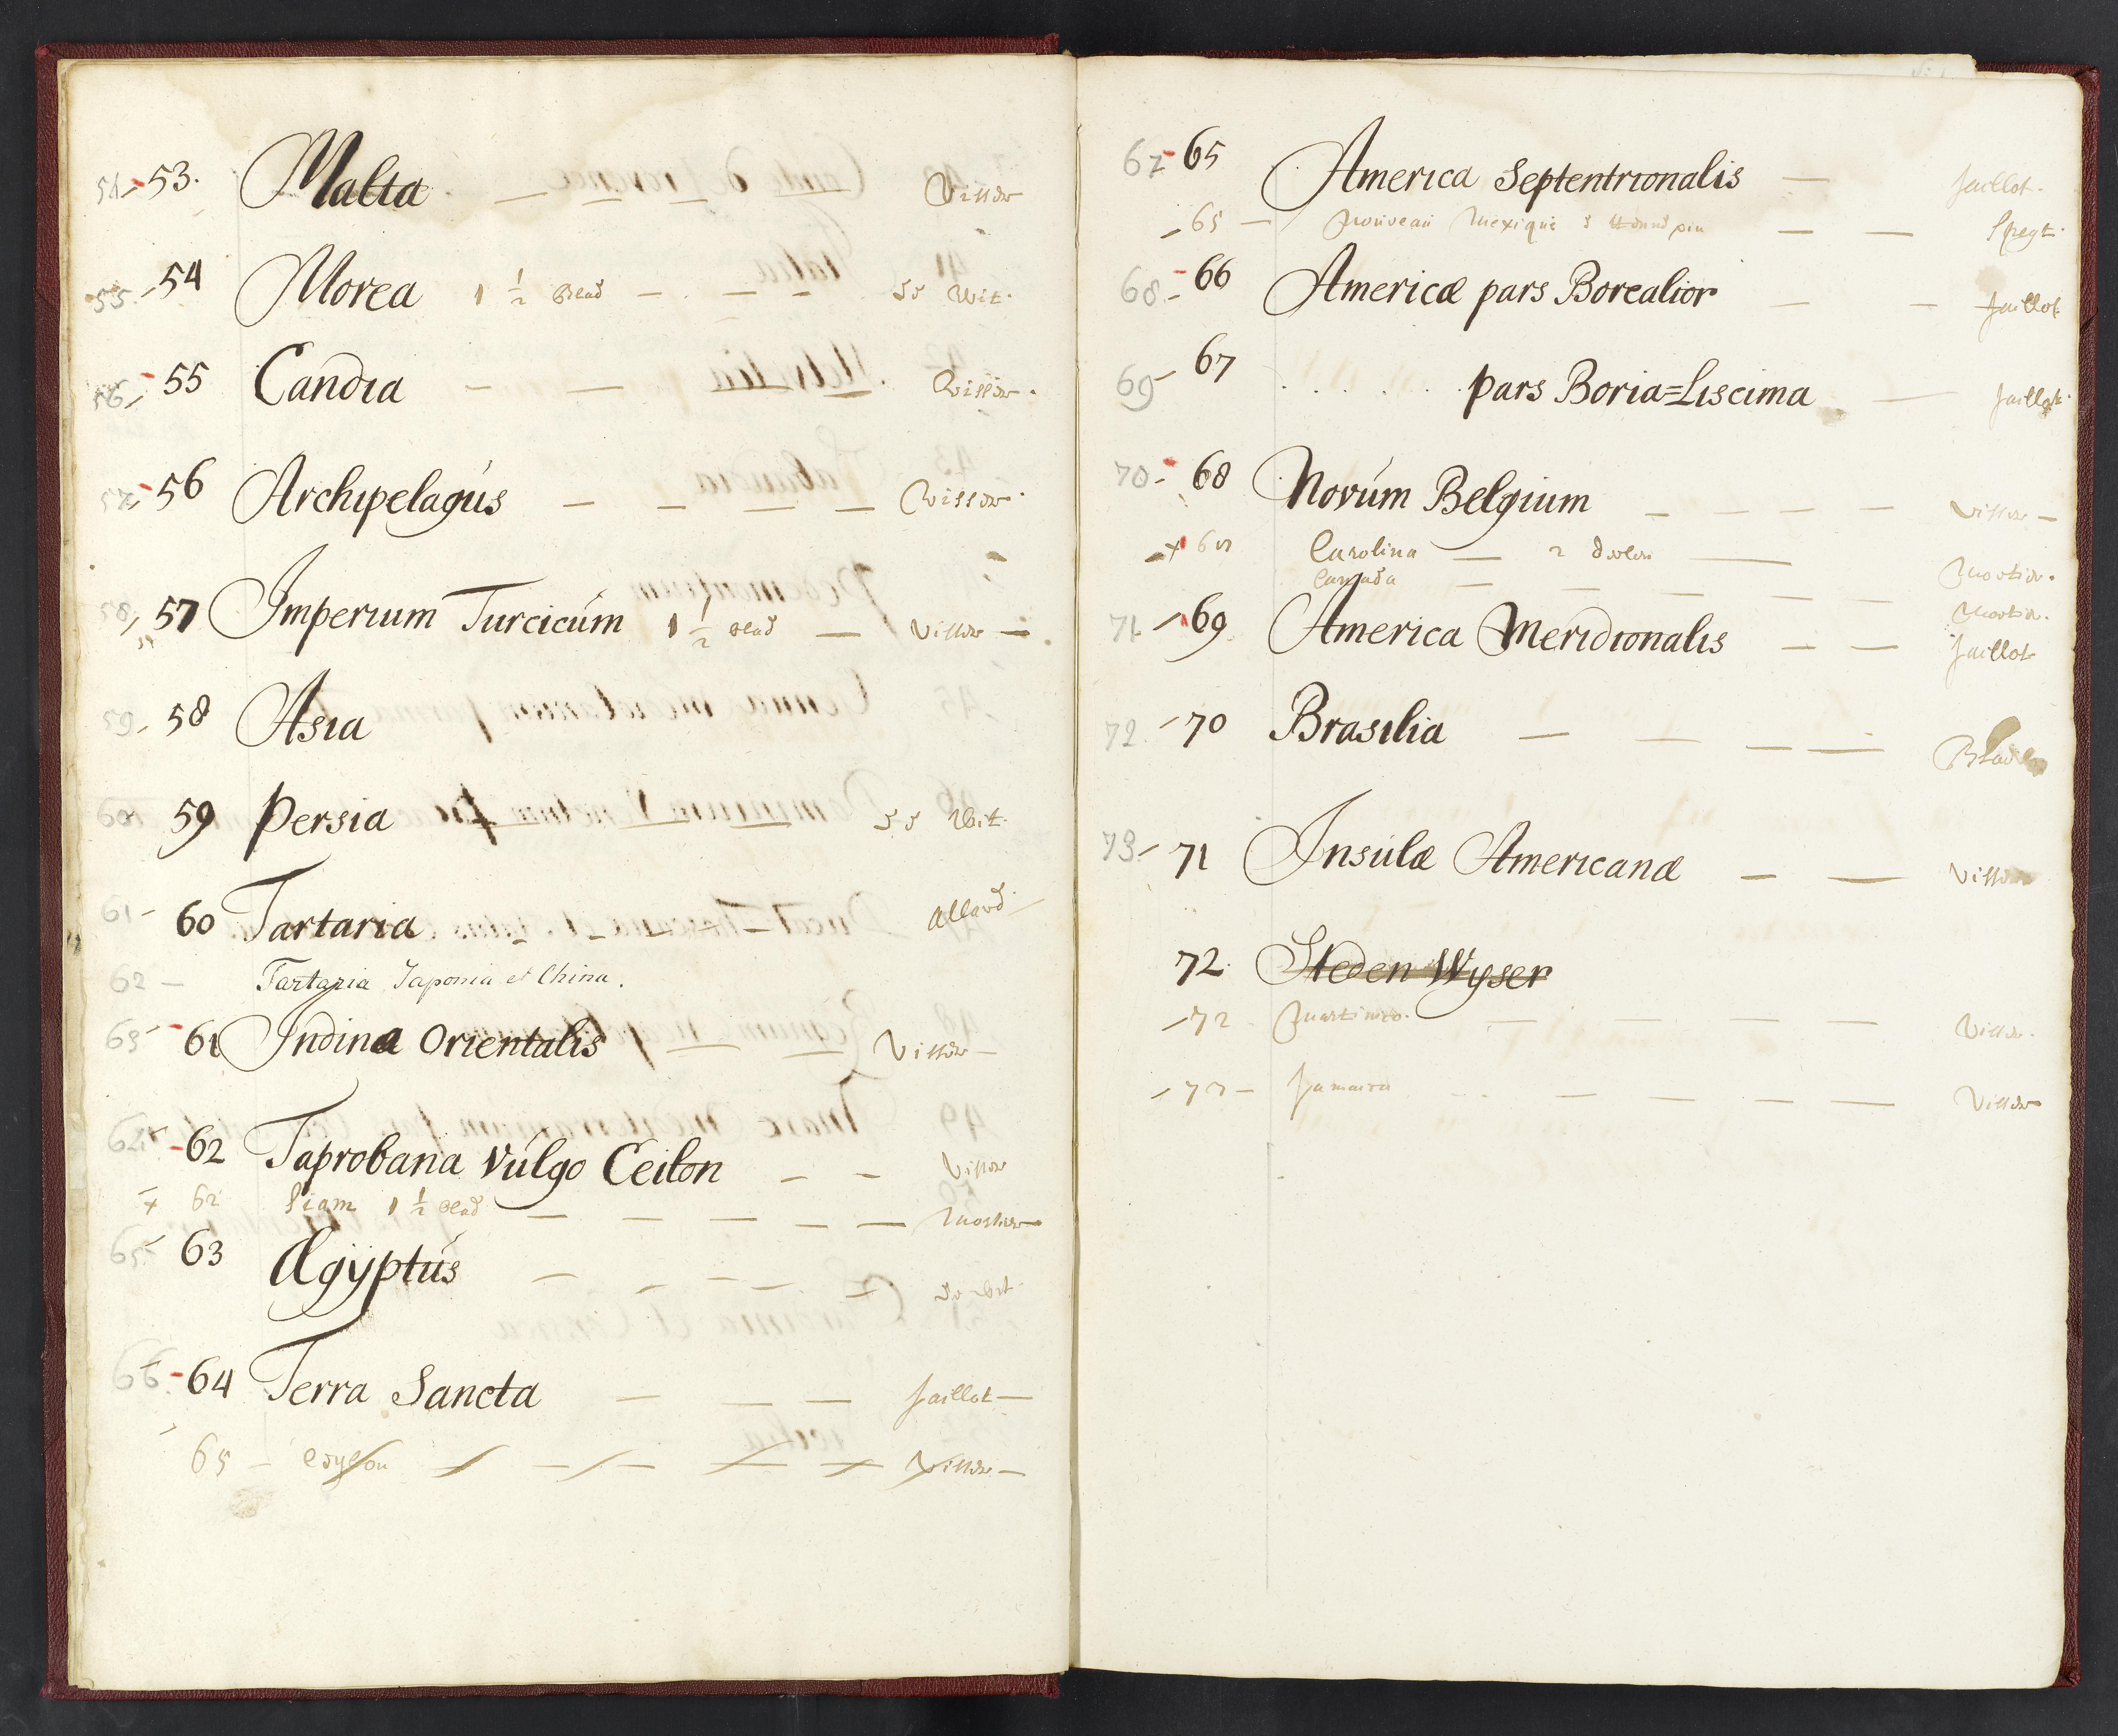 54 - 53. Malta — — — — Visser
55. - 54 Morea 1 1/2 Blad — — — de Wit.
56 - 55 Candia — — Visser.
57 - 56 Archipelagús — — — — Visser.
58 - 57 Imperium Turcicúm 1 1/2 Blad — Visser —
59 - 58 Asia
60 59 Persia de Wit.
61 - 60 Tartaria Allard
62 — Tartaria Japonia et China.
63 - 61 Indina Orientalis — — Visser —
64 - 62 Taprobana Vúlgo Ceilon — — Visser
+ 62 Siam 1 1/2 Blad — — — — — Mortier
65 - 63 Ægÿptús — — — — — de Wit
66 - 64 Terra Sancta — — — Jaillot —
65 — Ceylon — — — — Visser —
67 - 65 America Septentrionalis — Jaillot.
- 65 — Nouveau Mexique — —
68 - 66 Americæ pars Borealior — — Jaillot
69 - 67 . . . . . pars Boria=Liscima — Jaillot.
70 - 68 Novúm Belgium — — — — Visser —
+ 68 Carolina — 2 deelen — Mortier.
Canada — — — — — Mortier.
71 - 69 America Meridionalis — — Jaillot
72 - 70 Brasilia — — — — Blaeu
73 - 71 Insúlæ Americanæ — — Visser
72 Steden Wyser
- 72 Martinico. — — — — Visser.
- 73 — Jamaica — — — — Visser